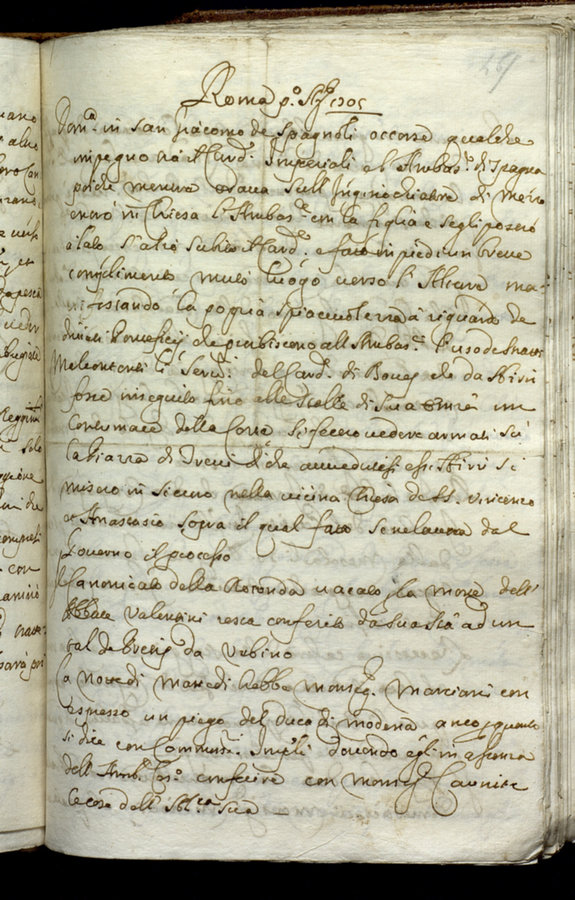 269
Roma p.º Ag.º 1705
Dom.ca in San Giacomo de Spagnoli occorse qualche
impegno trà il Card.e Imperiali e l'Ambas.re di Spagna
poiche mentre stava sull'Inginochiatore di
entrò in Chiesa l'Ambas.re con la figlia e se gli poserò
a lato s'alzò subito il Card.e e fatto in piedi un breve
complimento mutò luogo verso l'Altare ma-
nifestando la poi spiaciutezza a riguardo de
divieti Ponteficij che proibiscono all'Ambas.re l'uso de
Malcontenti li Serv.ri del Card.e di Boues che da Sbirri
fosse inseguito fino alle Scalle di Sua Em.za un
Contumace della Corte si fecero vedere armati sù
la Piazza di Trevi di che avvedutisi essi Sbirri si
misero in sicuro nella vicina Chiesa de SS. Vincenzo
et Anastasio sopra il qual fatto se ne lavora dal
Governo il processo
Il Canonicato della Rotonda vacato p la morte dell'
Abbate Valentini resta conferito da Sua S.tà ad un
tal de Brevij da Urbino
La notte di martedi hebbe Monsig.r Marciani con
espresso un piego del Duca di Modena anco p quanto
si dice con Commiss.ni Imp.li dovendo egli in assenza
dell'Amb.re Ces.o conferire con Monsig.r Caunitz
le cose dell'